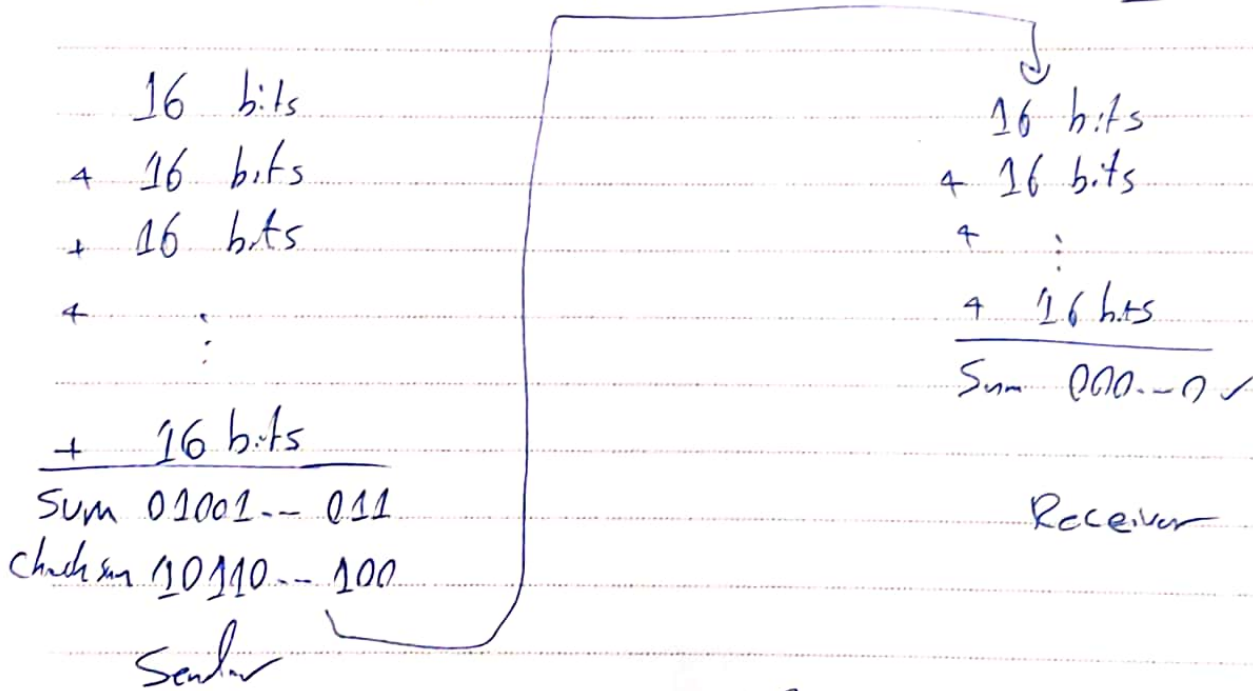 16 bits
+ 16 bits
+ 16 bits
+ ⋮
+ 16 bits
Sum 01001-- 011
Checksum 10110-- 100
Sender
16 bits
+ 16 bits
+ ⋮
+ 16 bits
Sum 000--0 ✓
Receiver